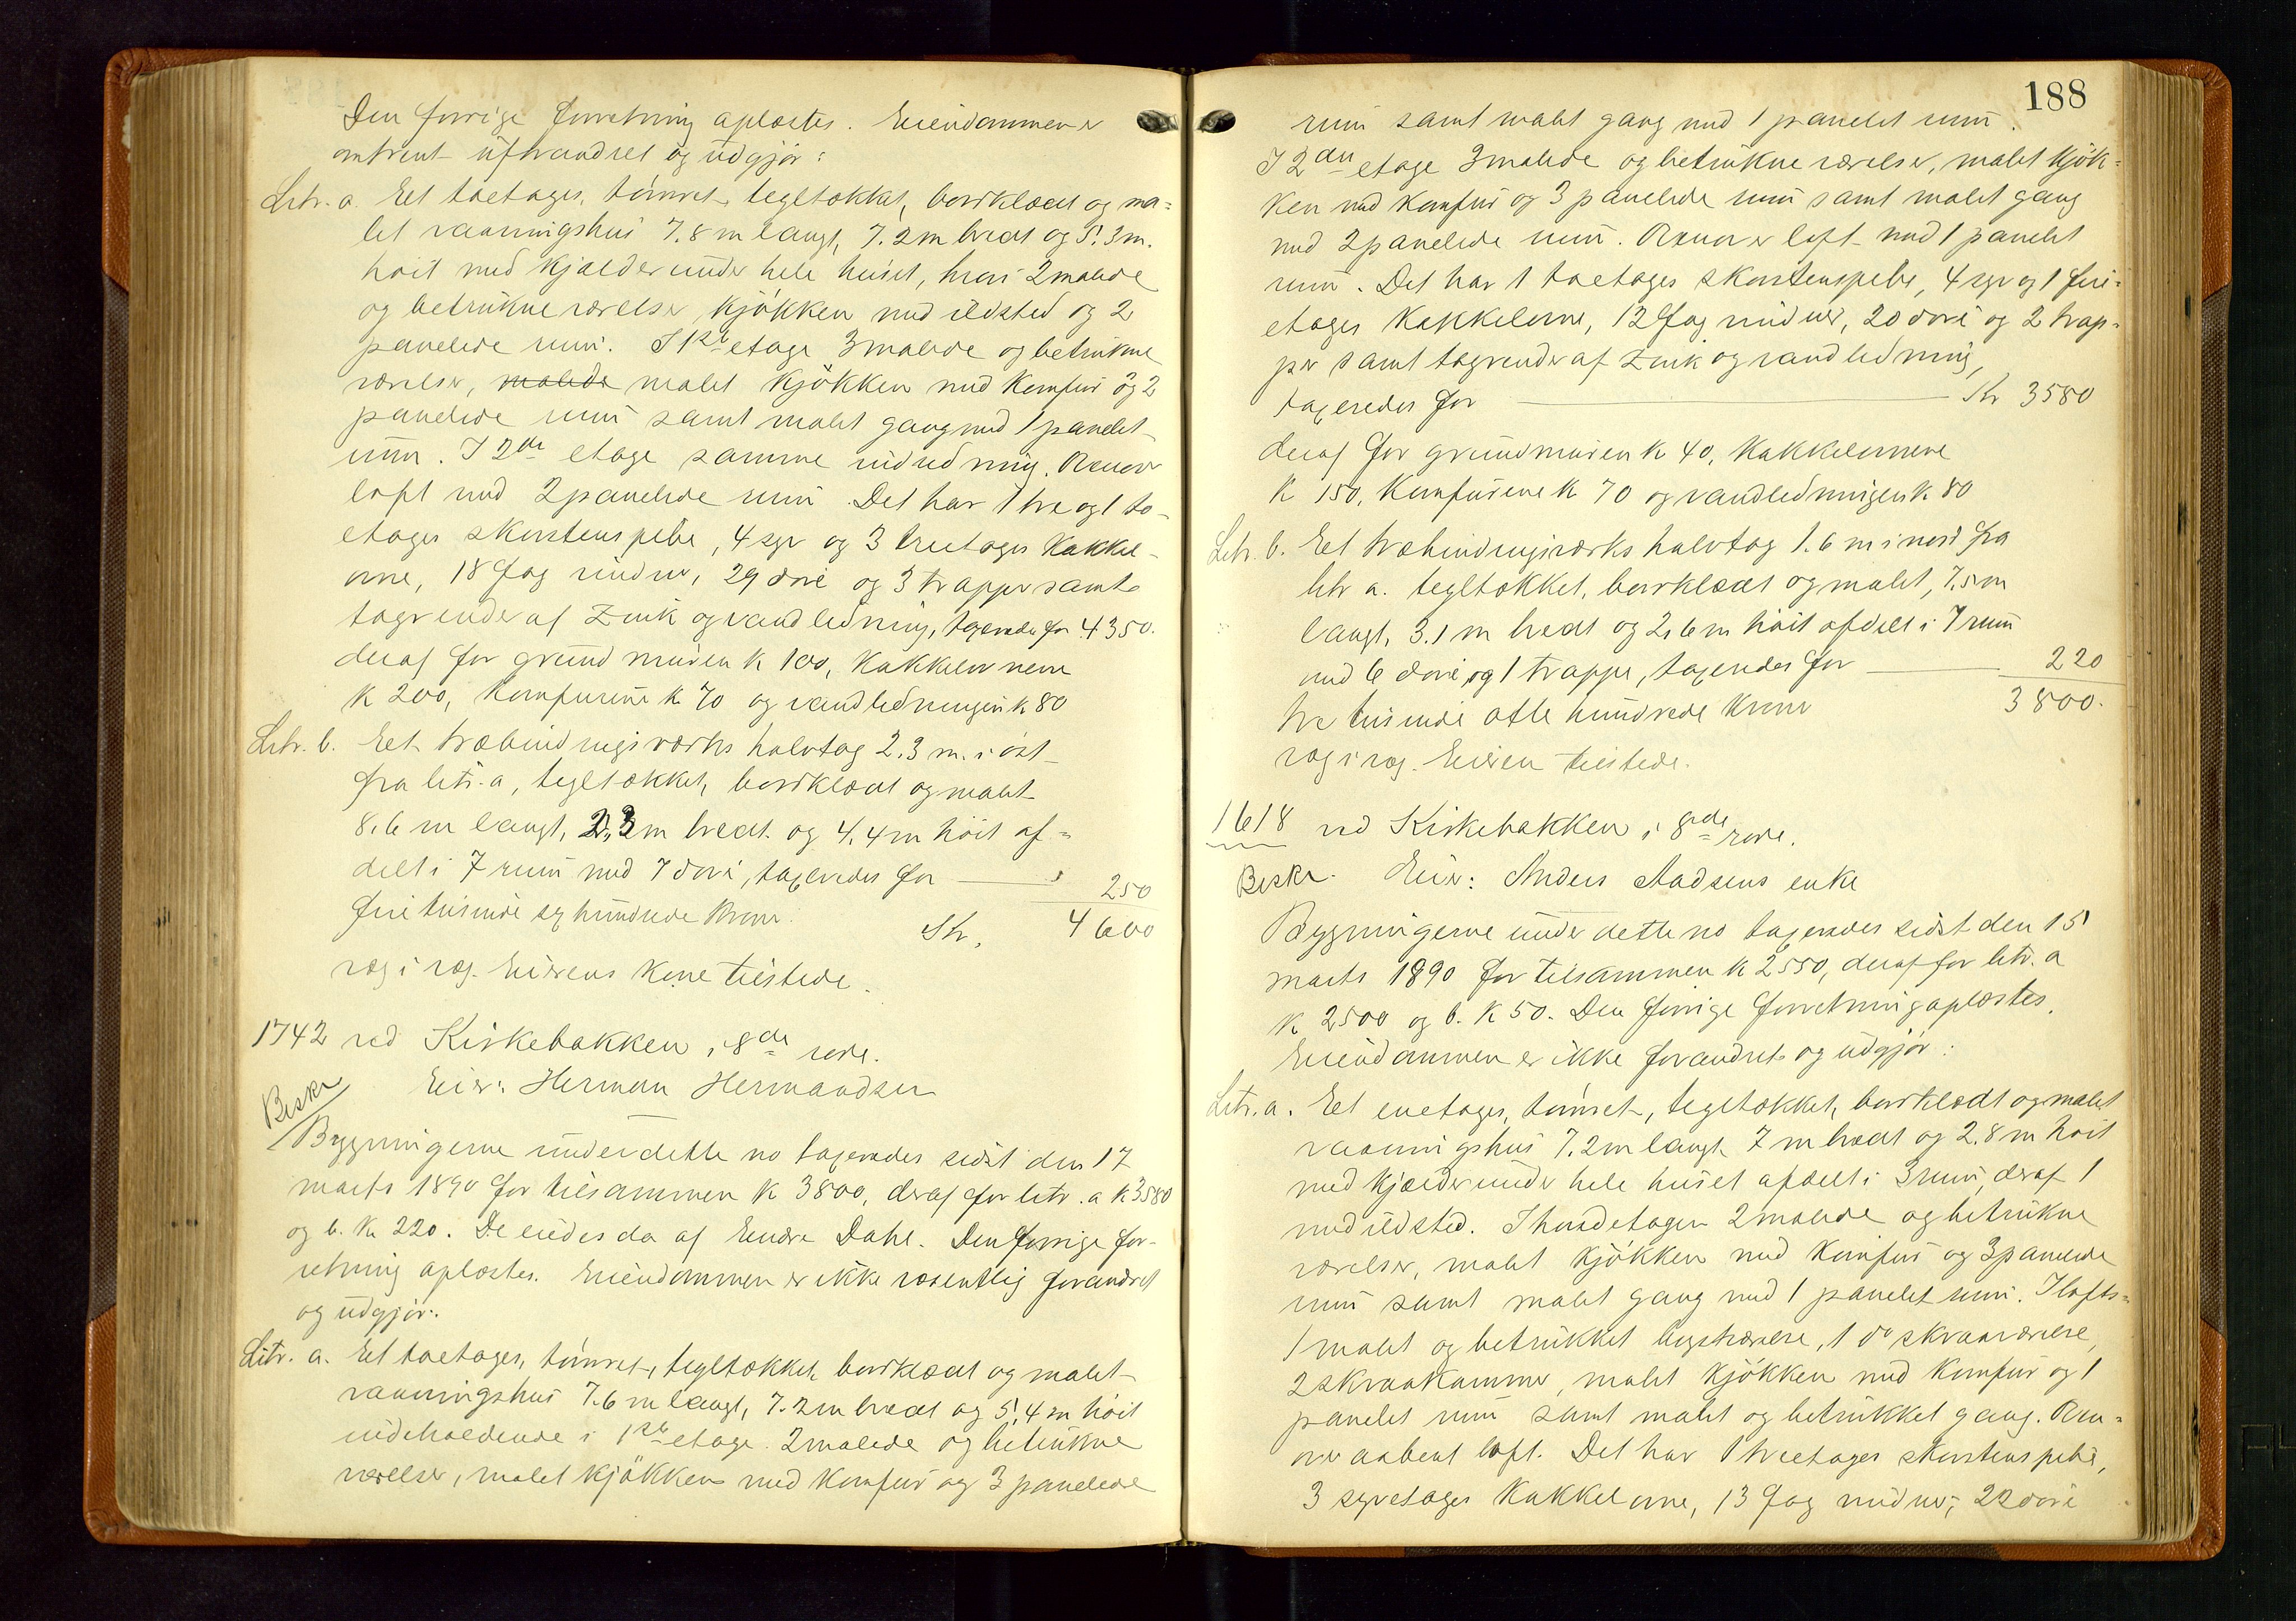 Den forrige forretning oplæstes. Eiendommen er
omtrent uforandret og udgjør:
Litr. a. Eet toetages, tømret, tegltækket, bordklædt og ma=
let vaaningshus 7.8 m langt, 7.2 m bredt og 5.3 m.
høit med kjælder under hele huset, hvori 2 malede
og betrukne værelser, kjøkken med ildsted og 2
panelede rum. I 1ste etage 3 malede og betrukne
værelser, malede malet kjøkken med komfur og 2
panelede rum samt malet gang med 1 panelet
rum. I 2den etage samme indredning. Ovenover
loft med 2 panelede rum. Det har 1 tre og 1 to-
etages skorstenspibe, 4 syv og 3 treetages kakkel-
ovne, 18 fag vinduer, 29 døre og 3 trapper samt
tagrender af zink og vandledning, taxeredes for 4350.
deraf for grundmuren k 100, kakkelovnene
k 200, komfurene k 70 og vandledningen k 80
Litr. b. Eet træbindingsverks halvtag 2.3 m. i øst
fra litr. a, tegltækket, bordklædt og malet
8.6 m langt, 2.3 m bredt og 4.4 m høit af=
delt i 7 rum med 7 døre, taxeredes for 250
fire tusinde sex hundrede kroner. Kr. 4600
væg i væg. Eierens kone tilstede.
1742 ved Kirkebakken i 8de rode.
Eier: Herman Hermandsen
Beskr
Bygningerne under dette no taxeredes sidst den 17
marts 1890 for tilsammen k 3800, deraf for litr. a k 3580
og b. k 220. De eiedes da af Endre Dahl. Den forrige for-
retning oplæstes. Eiendommen er ikke væsentlig forandret
og udgjør:
Litr. a. Eet toetages, tømret, tegltækket, bordklædt og malet
vaaningshus 7.6 m langt, 7.2 m bredt og 5.4 m høit
indeholdende i 1ste etage 2 malede og betrukne
værelser, malet kjøkken med komfur og 3 panelede
188
rum samt malet gang med 1 panelet rum.
I 2den etage 3 malede og betrukne værelser, malet kjøk=
ken med komfur og 3 panelede rum samt malet gang
med 2 panelede rum. Ovenover loft med 1 panelet
rum. Det har 1 toetages skorstenspibe, 4 syv og 1 fire=
etages kakkelovne, 12 fag vinduer, 20 døre og 2 trap=
per samt tagrender af zink og vandledning,
taxeredes for Kr 3580
deraf for grundmuren k 40, kakkelovnene
k 150, komfurene k 70 og vandledningen k 80
Litr. b. Eet træbindingsverks halvtag 1.6 m i nord fra
litr a. tegltækket, bordklædt og malet, 7.5 m
langt, 3.1 m bredt og 2.6 m høit afdelt i 7 rum
med 6 døre og 1 trappe, taxeredes for 220
tre tusinde otte hundrede kroner 3800.
væg i væg. Eieren tilstede.
1618 ved Kirkebakken i 8de rode.
Beskr. Eier: Anders Aadsens enke
Bygningerne under dette no taxeredes sidst den 15
marts 1890 for tilsammen k 2550, deraf for litr. a
k 2500 og b. k 50. Den forrige forretning oplæstes.
Eiendommen er ikke forandret og udgjør:
Litr. a. Eet enetages, tømret, tegltækket, bordklædt og malet
vaaningshus 7.2 m langt, 7 m bredt og 2.8 m høit
med kjælder under hele huset afdelt i 3 rum, deraf 1
med ildsted. I hovedetagen 2 malede og betrukne
værelser, malet kjøkken med komfur og 3 panelede
rum samt malet gang med 1 panelet rum. I lofts=
1 malet og betrukket kvistværelse, 1 do skraaværelse,
2 skraakammer, malet kjøkken med komfur og 1
panelet rum samt malet og betrukket gang. Oven=
over aabent loft. Det har 1 treetages skorstenspibe,
3 syvetages kakkelovne, 13 fag vinduer, 22 døre